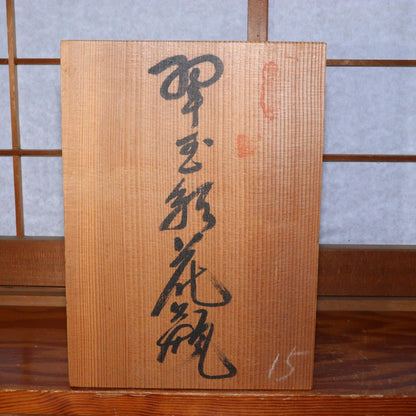 翠玉釉花瓶
15